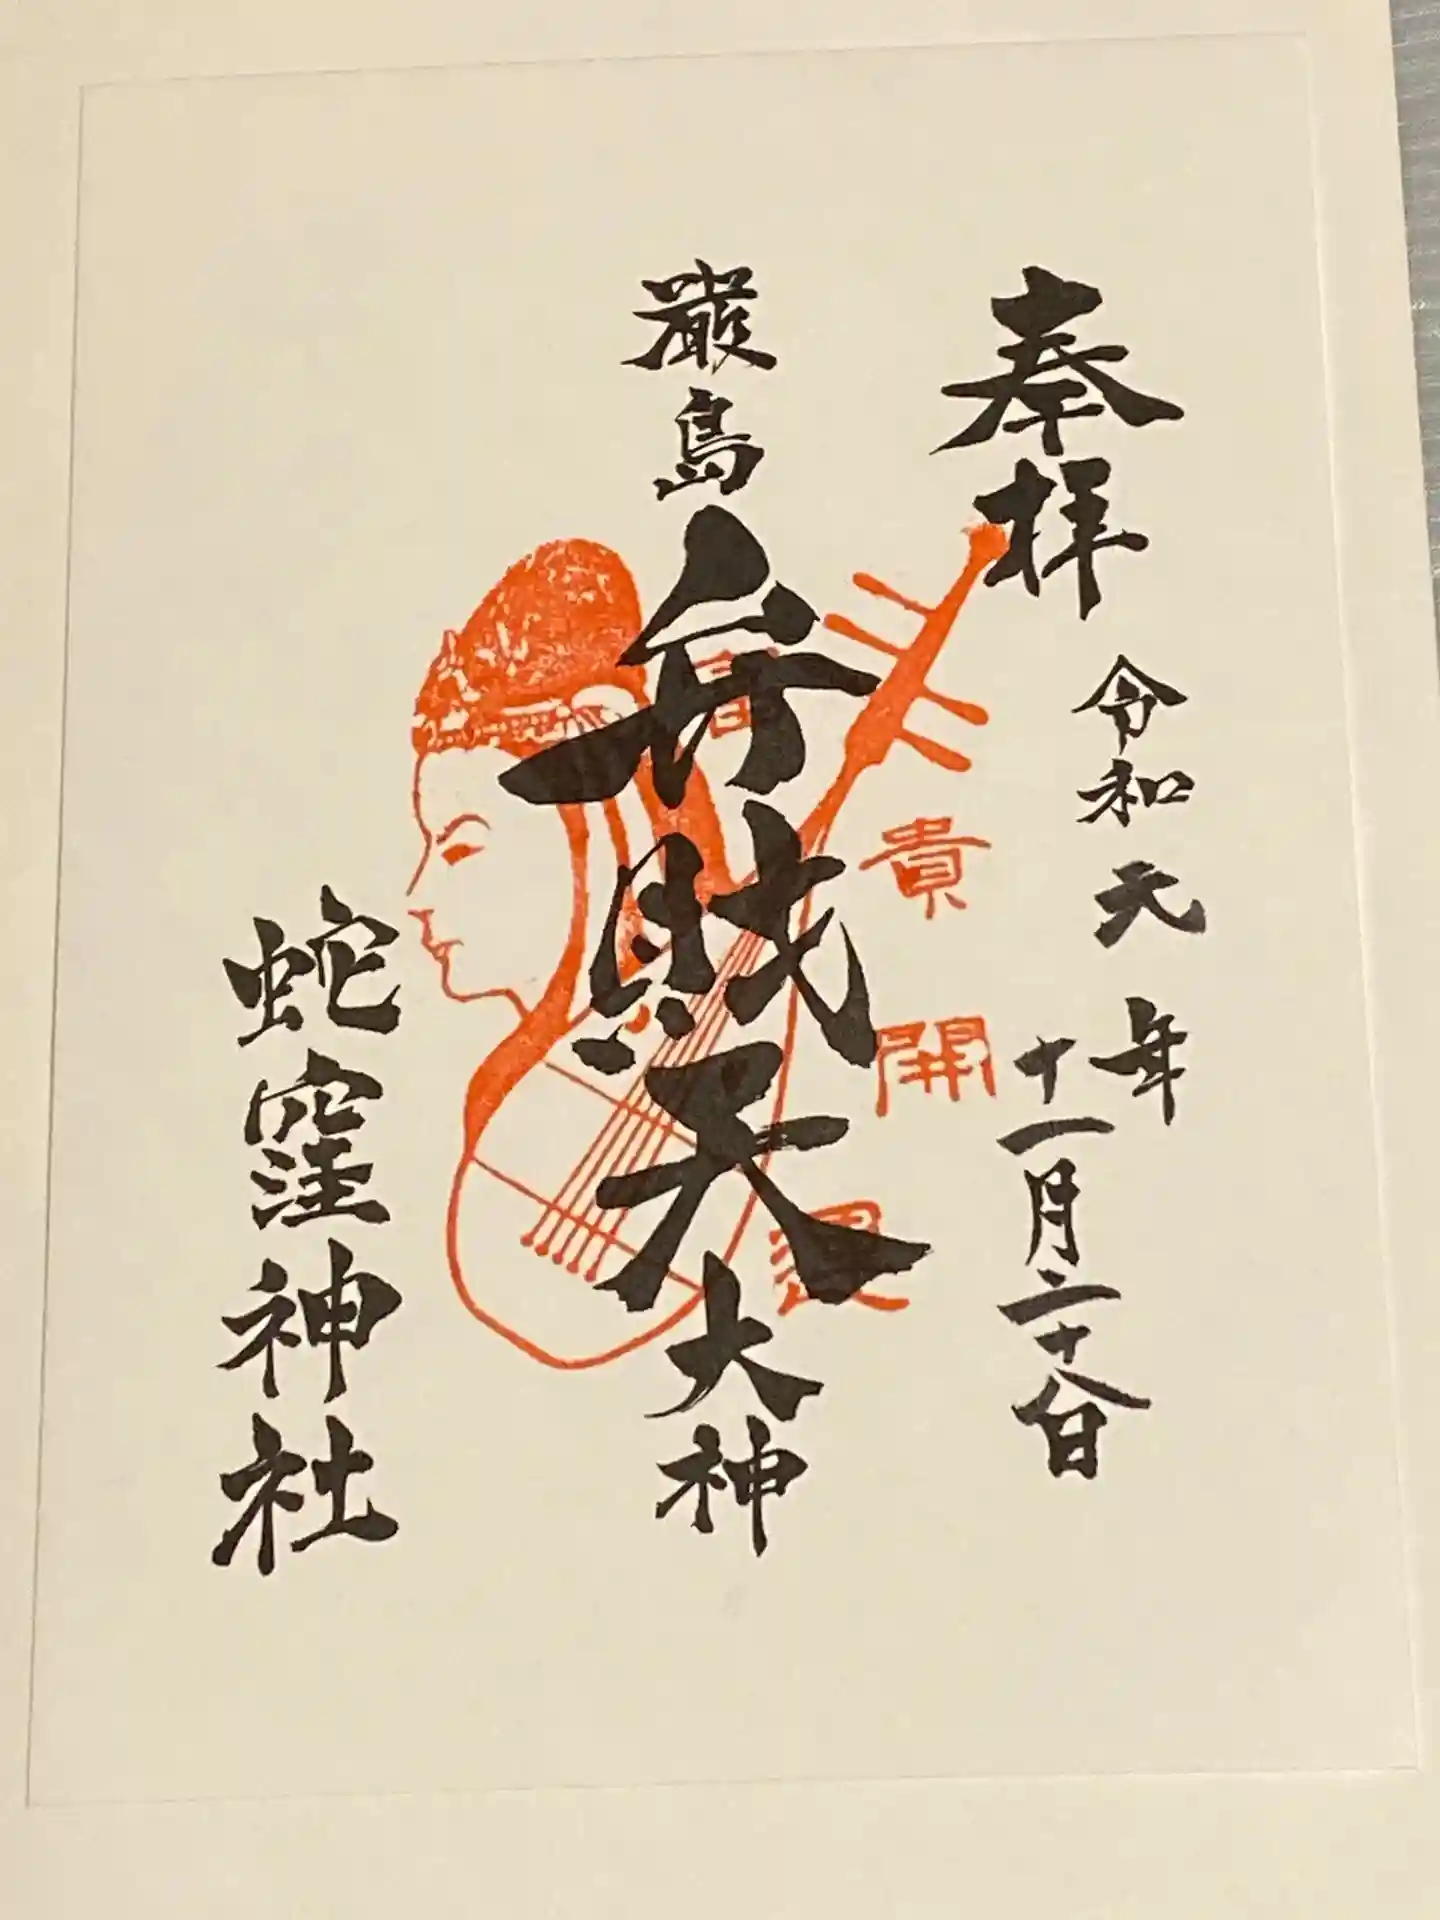 奉拝
令和元年
十一月二十八日
厳島弁財天大神
富貴開運
蛇窪神社